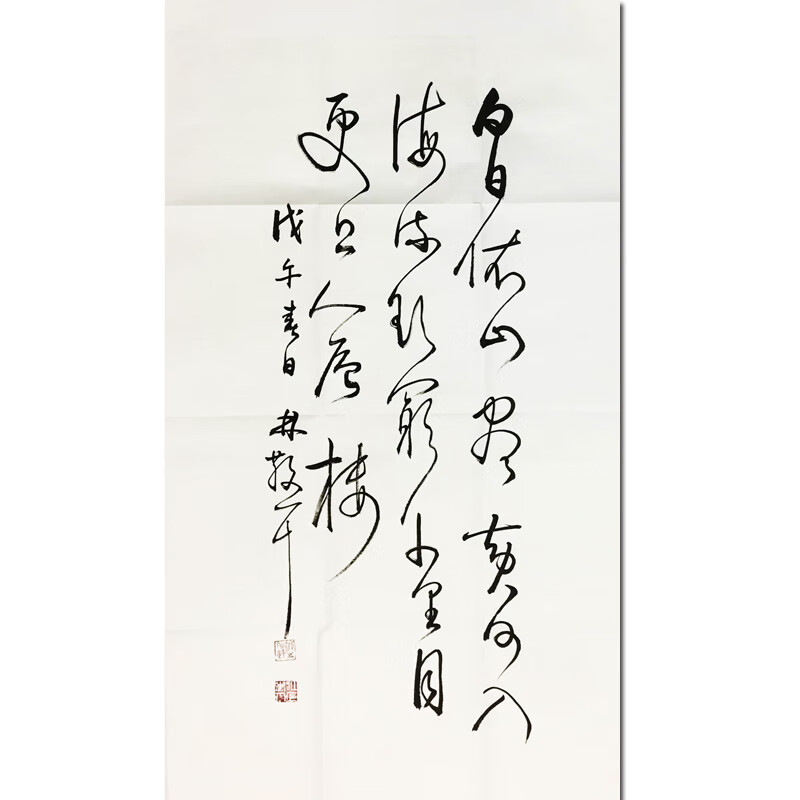 白日依山尽黄河入
海流欲窮千里目
更上一层楼
戊午春日 林散耳